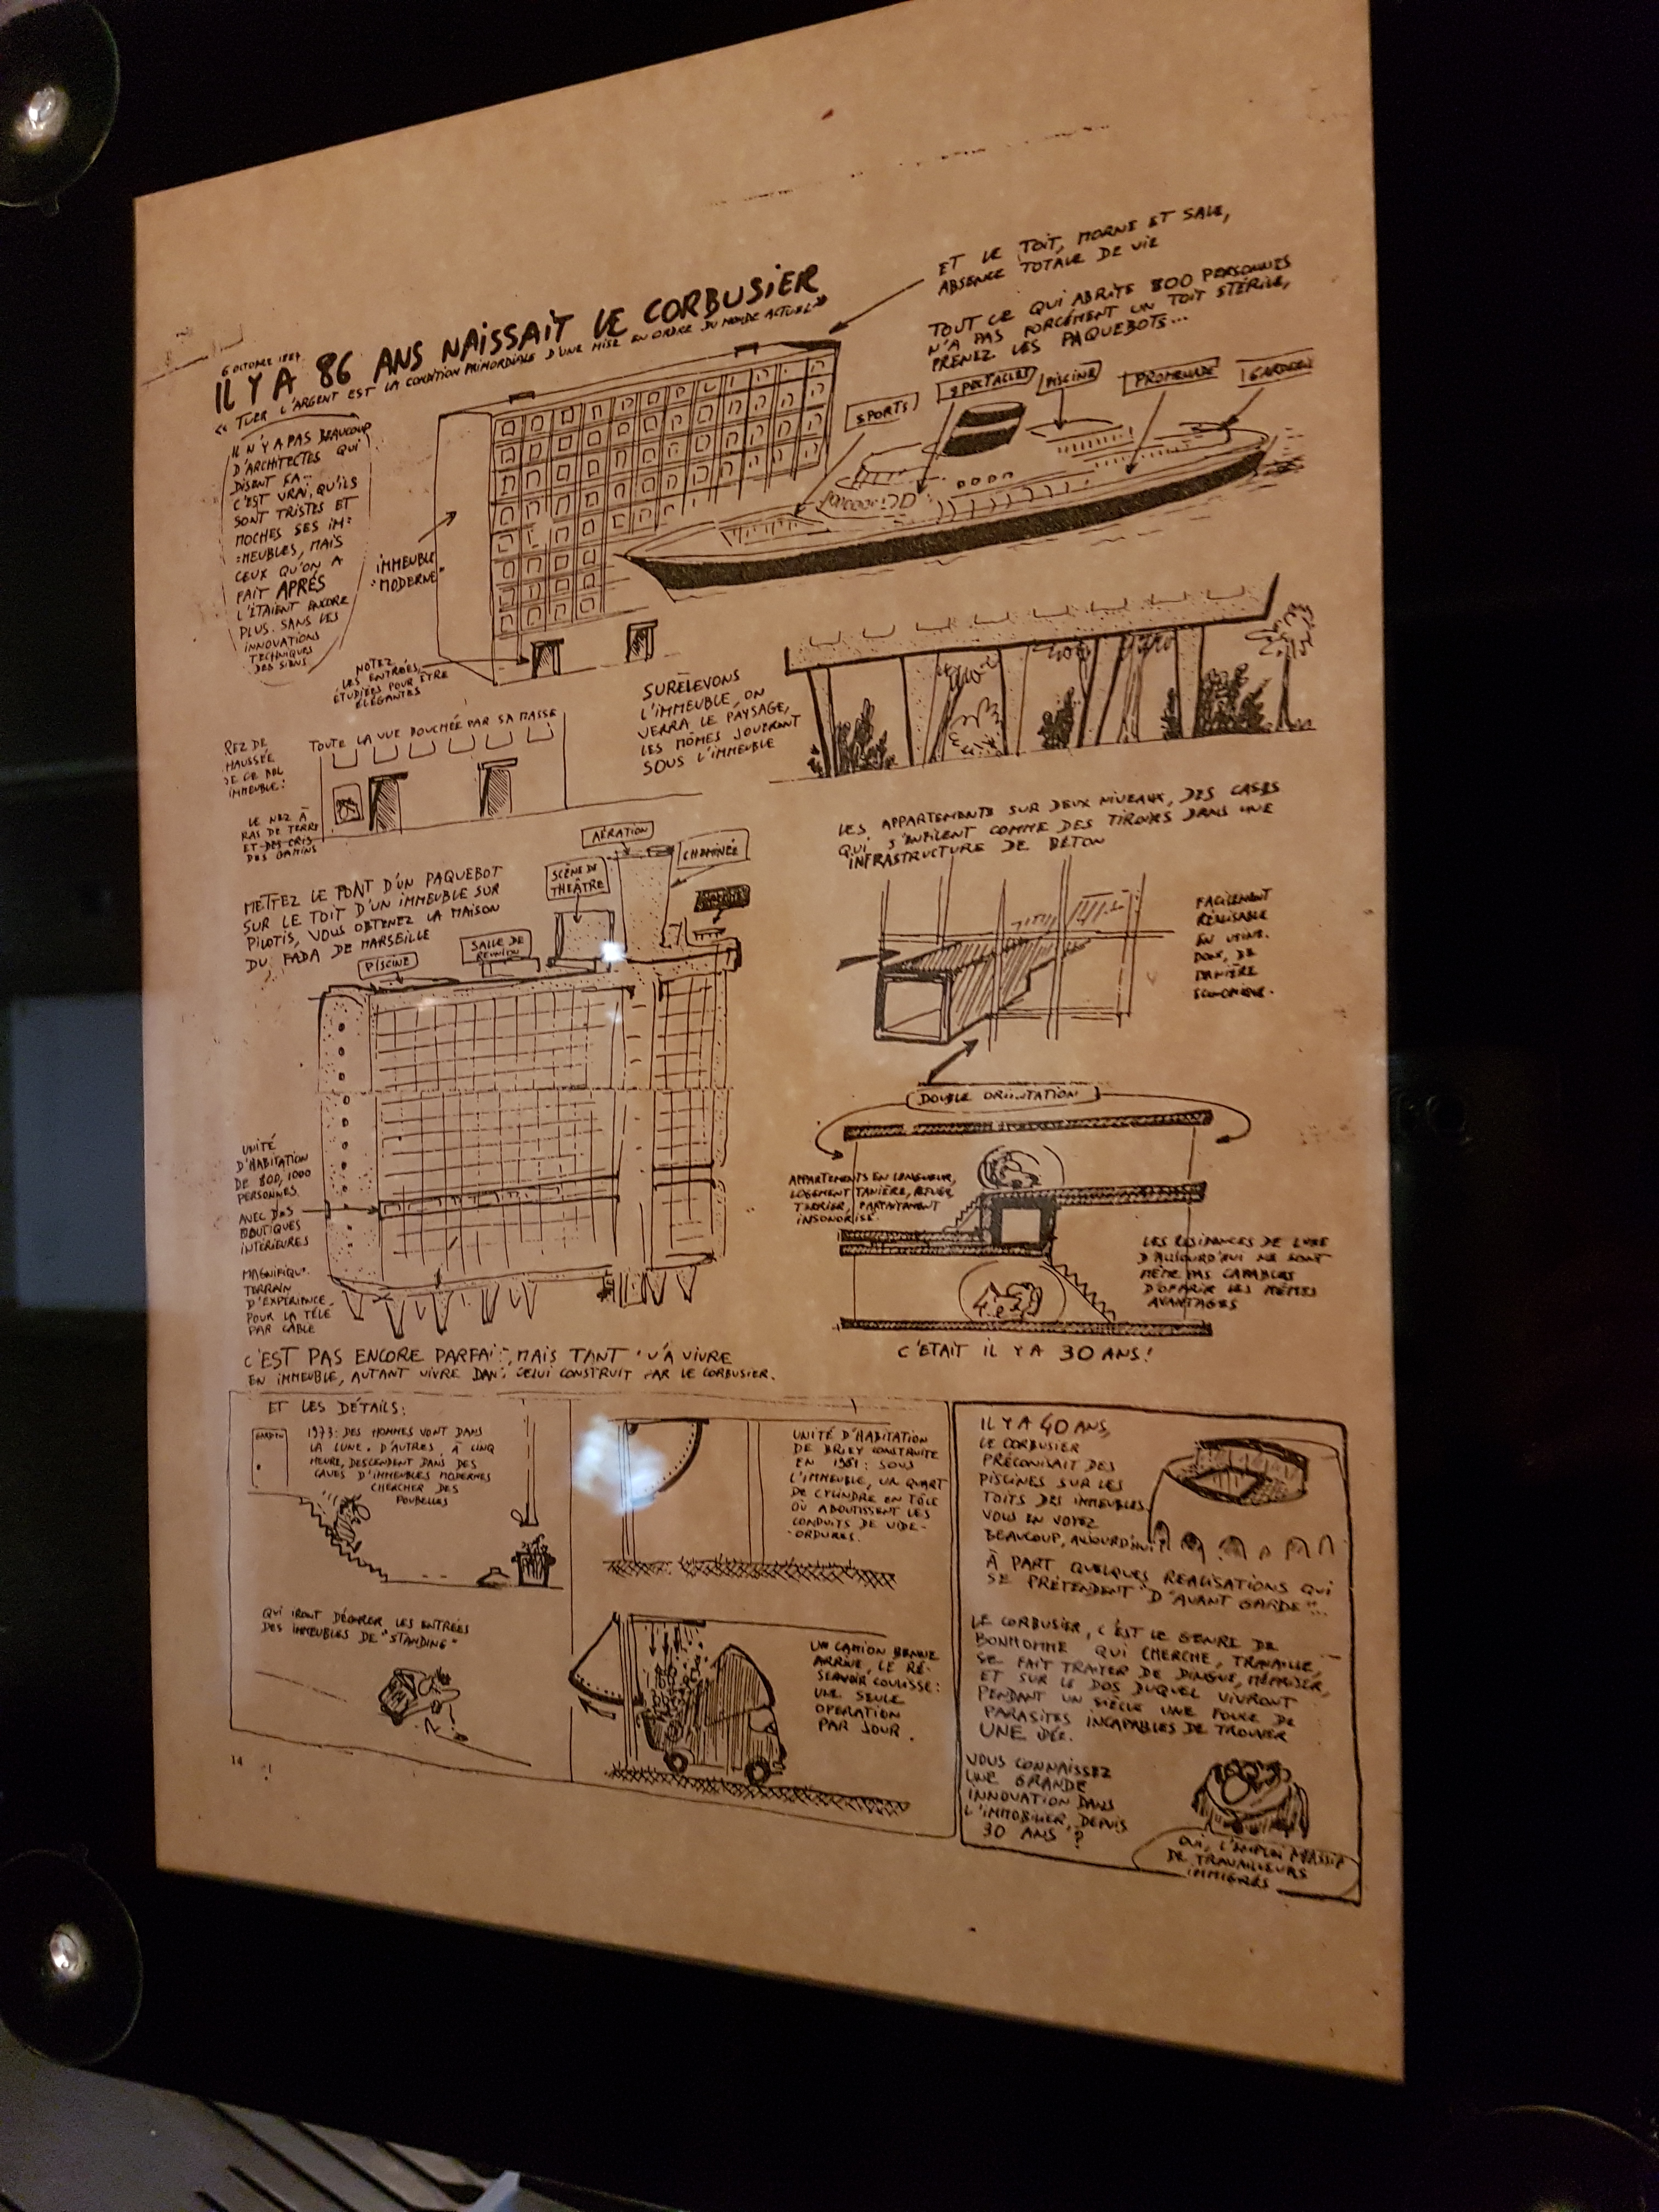 6 OCTOBRE 1887
IL Y A 86 ANS NAISSAIT LE CORBUSIER
« TUER L'ARGENT EST LA CONDITION PRIMORDIALE D'UNE MISE EN ORDRE DU MONDE ACTUEL »
IL N'Y A PAS BEAUCOUP
D'ARCHITECTES QUI
DISENT ÇA...
C'EST VRAI, QU'ILS
SONT TRISTES ET
MOCHES SES IM=
=MEUBLES, MAIS
CEUX QU'ON A
FAIT APRÈS
L'ÉTAIENT ENCORE
PLUS. SANS LES
INNOVATIONS
TECHNIQUES
DES SIENS
IMMEUBLE
"MODERNE"
ET LE TOIT, MORNE ET SALE,
ABSENCE TOTALE DE VIE
TOUT CE QUI ABRITE 800 PERSONNES
N'A PAS FORCÉMENT UN TOIT STÉRILE,
PRENEZ LES PAQUEBOTS...
SPORTS
SPECTACLES
PISCINE
PROMENADE
GARDERIE
NOTEZ
LES ENTRÉES,
ÉTUDIÉES POUR ÊTRE
ÉLÉGANTES
SURÉLEVONS
L'IMMEUBLE, ON
VERRA LE PAYSAGE,
LES MÔMES JOUERONT
SOUS L'IMMEUBLE
REZ DE
CHAUSSÉE
DE CE BEL
IMMEUBLE:
TOUTE LA VUE BOUCHÉE PAR SA MASSE
LE NEZ À
RAS DE TERRE
ET DES CRIS
DES GAMINS
METTEZ LE PONT D'UN PAQUEBOT
SUR LE TOIT D'UN IMMEUBLE SUR
PILOTIS, VOUS OBTENEZ LA MAISON
DU FADA DE MARSEILLE
PISCINE
SALLE DE
RÉUNION
SCÈNE DE
THÉÂTRE
AÉRATION
CHEMINÉE
LES APPARTEMENTS SUR DEUX NIVEAUX, DES CASES
QUI S'ENFILENT COMME DES TIROIRS DANS UNE
INFRASTRUCTURE DE BÉTON
FACILEMENT
RÉALISABLE
EN USINE.
DONC, DE
MANIÈRE
ÉCONOMIQUE.
UNITÉ
D'HABITATION
DE 800, 1000
PERSONNES
AVEC DES
BOUTIQUES
INTÉRIEURES
MAGNIFIQUE
TERRAIN
D'EXPÉRIENCE
POUR LA TÉLÉ
PAR CÂBLE
DOUBLE ORIENTATION
APPARTEMENTS EN LONGUEUR,
LOGEMENT TANIÈRE, REFUGE,
TERRIER, PARFAITEMENT
INSONORISÉ.
LES RÉSIDENCES DE LUXE
D'AUJOURD'HUI NE SONT
MÊME PAS CAPABLES
D'OFFRIR LES MÊMES
AVANTAGES
C'ÉTAIT IL Y A 30 ANS!
C'EST PAS ENCORE PARFAIT, MAIS TANT QU'À VIVRE
EN IMMEUBLE, AUTANT VIVRE DANS CELUI CONSTRUIT PAR LE CORBUSIER.
ET LES DÉTAILS:
GARDIEN
1973: DES HOMMES VONT DANS
LA LUNE. D'AUTRES, À CINQ
HEURE, DESCENDENT DANS DES
CAVES D'IMMEUBLES MODERNES
CHERCHER DES
POUBELLES
QUI IRONT DÉCORER LES ENTRÉES
DES IMMEUBLES DE "STANDING"
UNITÉ D'HABITATION
DE BRIEY CONSTRUITE
EN 1961: SOUS
L'IMMEUBLE, UN QUART
DE CYLINDRE EN TÔLE
OÙ ABOUTISSENT LES
CONDUITS DE VIDE-
-ORDURES.
UN CAMION BENNE
ARRIVE, LE RÉ-
SERVOIR COULISSE:
UNE SEULE
OPÉRATION
PAR JOUR.
IL Y A 40 ANS,
LE CORBUSIER
PRÉCONISAIT DES
PISCINES SUR LES
TOITS DES IMMEUBLES.
VOUS EN VOYEZ
BEAUCOUP, AUJOURD'HUI?
À PART QUELQUES RÉALISATIONS QUI
SE PRÉTENDENT "D'AVANT GARDE"...
LE CORBUSIER, C'EST LE GENRE DE
BONHOMME QUI CHERCHE, TRAVAILLE,
SE FAIT TRAITER DE DINGUE, MÉPRISER,
ET SUR LE DOS DUQUEL VIVRONT
PENDANT UN SIÈCLE UNE FOULE DE
PARASITES INCAPABLES DE TROUVER
UNE IDÉE.
VOUS CONNAISSEZ
UNE GRANDE
INNOVATION DANS
L'IMMOBILIER, DEPUIS
30 ANS?
OUI, L'EMPLOI MASSIF
DE TRAVAILLEURS
IMMIGRÉS
14